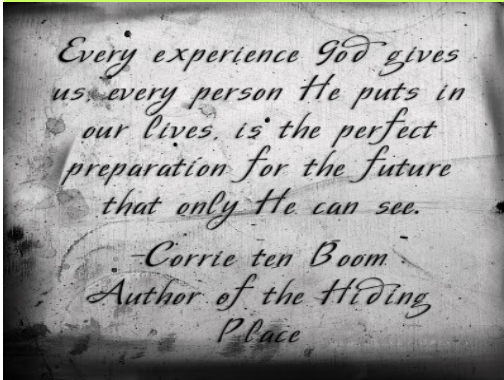 Every experience God gives
us, every person He puts in
our lives, is the perfect
preparation for the future
that only He can see.
-Corrie ten Boom
Author of the Hiding
Place